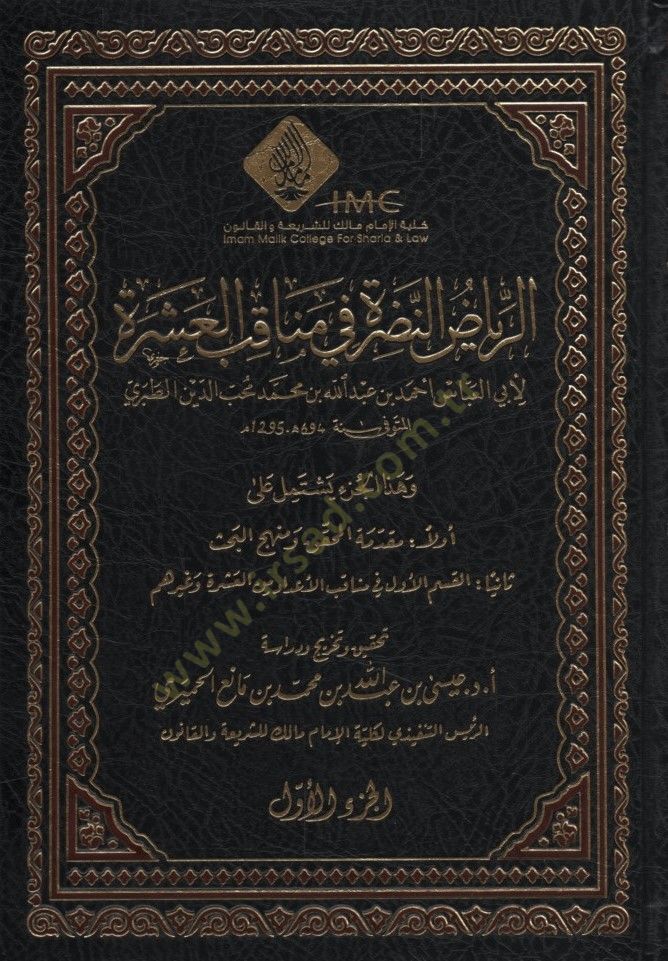 IMC
كلية الإمام مالك للشريعة والقانون
Imam Malik College For Sharia & Law
الرِّيَاضُ النَّضِرَةُ فِي مَنَاقِبِ الْعَشَرَةِ
لأبي العباس أحمد بن عبد الله بن محمد محب الدين الطبري
المتوفى سنة ٦٩٤هـ-1295م
وَهَذَا الجُزْءُ يَشْتَمِلُ عَلَى
أولاً: مقدمة المحقق ومنهج البحث
ثانيًا: القسم الأول في مناقب الأعداد من العشرة وغيرهم
تحقيق وتخريج ودراسة
أ. د. عيسى بن عبد الله بن محمد بن مانع الحميري
الرئيس التنفيذي لكلية الإمام مالك للشريعة والقانون
الجزء الأول
www.irsad.com.tr